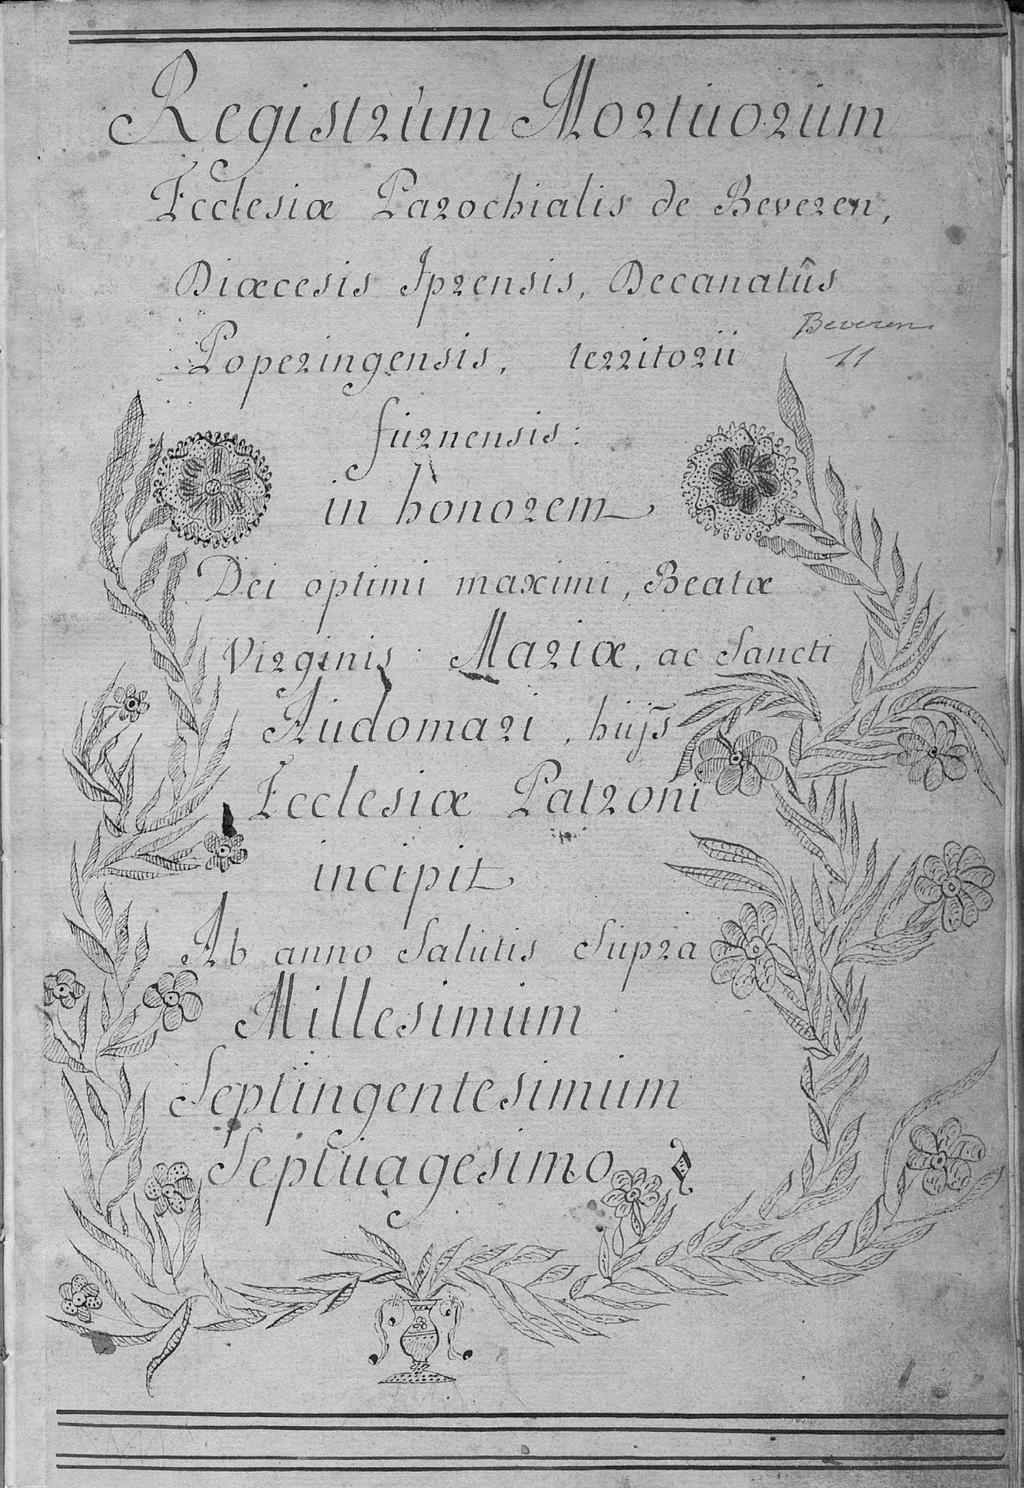 Registrum Mortuorum
Ecclesiæ Parochialis de Beveren,
Diœcesis Iprensis, Decanatûs
Beveren
Poperingensis, territorii
11
furnensis:
in honorem
Dei optimi maximi, Beatæ
Virginis Mariæ, ac Sancti
Audomari, hujs
Ecclesiæ Patroni
incipit
Ab anno Salutis Supra
Millesimum
Septingentesimum
Septuagesimo